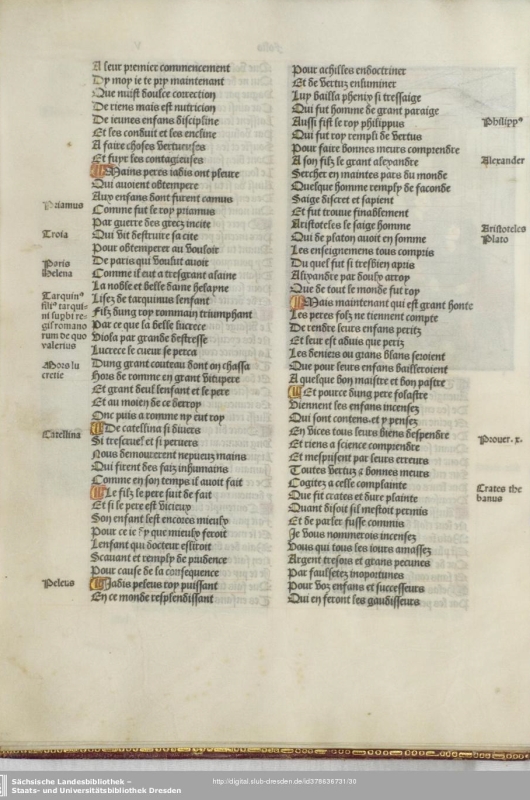 A leur premier commencement
Dy moy ie te pry maintenant
Que nuist doulce correction
De riens mais est nutricion
De ieunes enfans discipline
Et les conduit et les encline
A faire choses vertueuses
Et fuyr les contagieuses
Mains peres iadis ont pleure
Qui auoient obtempere
Aux enfans dont furent camus
Priamus
Comme fut le roy priamus
Par guerre des grecz incite
Troia
Qui vit destruire sa cite
Pour obtemperer au vouloir
Paris
De paris qui voulut auoir
Helena
Comme il eut a tresgrant alaine
La noble et belle dame helayne
Tarquinꝰ
filiꝰ tarqui-
ni supbi re-
gis romano
rum de quo
valerius
Lisez de tarquinus lenfant
Filz dung roy rommain triumphant
Par ce que la belle lucrece
Viola par grande destresse
Lucrece le cueur se perca
Mors lu
crecie
Dung grant couteau dont on chassa
Hors de romme en grant vitupere
Et grant deul lenfant et le pere
Et au moien de ce desroy
Onc puis a romme ny eut roy
Catellina
De catellina si diuers
Si trescruel et si peruers
Nous demourerent nepueuz mains
Qui firent des faiz inhumains
Comme en son temps il auoit fait
Le filz le pere suit de fait
Et si le pere est vicieux
Son enfant lest encores mieulx
Pour ce ie dy que mieulx seroit
Lenfant qui docteur esliroit
Scauant et remply de prudence
Pour cause de la consequence
Peleus
Jadis peleus roy puissant
En ce monde resplendissant
Pour achilles endoctriner
Et de vertuz enluminer
Luy bailla phenix si tressaige
Qui fut homme de grant paraige
Philippꝰ
Aussi fist le roy philippus
Qui fut roy rempli de vertus
Pour faire bonnes meurs comprendre
Alexander
A son filz le grant alexandre
Sercher en maintes pars du monde
Quelque homme remply de faconde
Saige discret et sapient
Et fut trouue finablement
Aristoteles
Aristoteles le saige homme
Plato
Qui de platon auoit en somme
Les enseignemens tous compris
Du quel fut si tresbien apris
Alixandre par doulx arroy
Que de tout le monde fut roy
Mais maintenant qui est grant honte
Les peres folz ne tiennent compte
De rendre leurs enfans peritz
Et leur est aduis que periz
Les deniers ou gians blans seroient
Que pour leurs enfans bailleroient
A quelque bon maistre et bon pastre
Et pource dung pere folastre
Viennent les enfans incensez
Qui sont contens et y pensez
En vices tous leurs biens despendre
Prouer. x.
Et riens a science comprendre
Et mesprisent par leurs erreurs
Toutes vertuz & bonnes meurs
Cogitez a celle complainte
Crates the
banus
Que fit crates et dure plainte
Quant disoit sil mestoit permis
Et de parler fusse commis
Je vous nommerois incensez
Vous qui tous les iours amassez
Argent tresors et grans pecunes
Par faulsetez inoportunes
Pour voz enfans et successeurs
Qui en feront les gaudisseurs
Sächsische Landesbibliothek –
Staats- und Universitätsbibliothek Dresden
http://digital.slub-dresden.de/id378636731/30